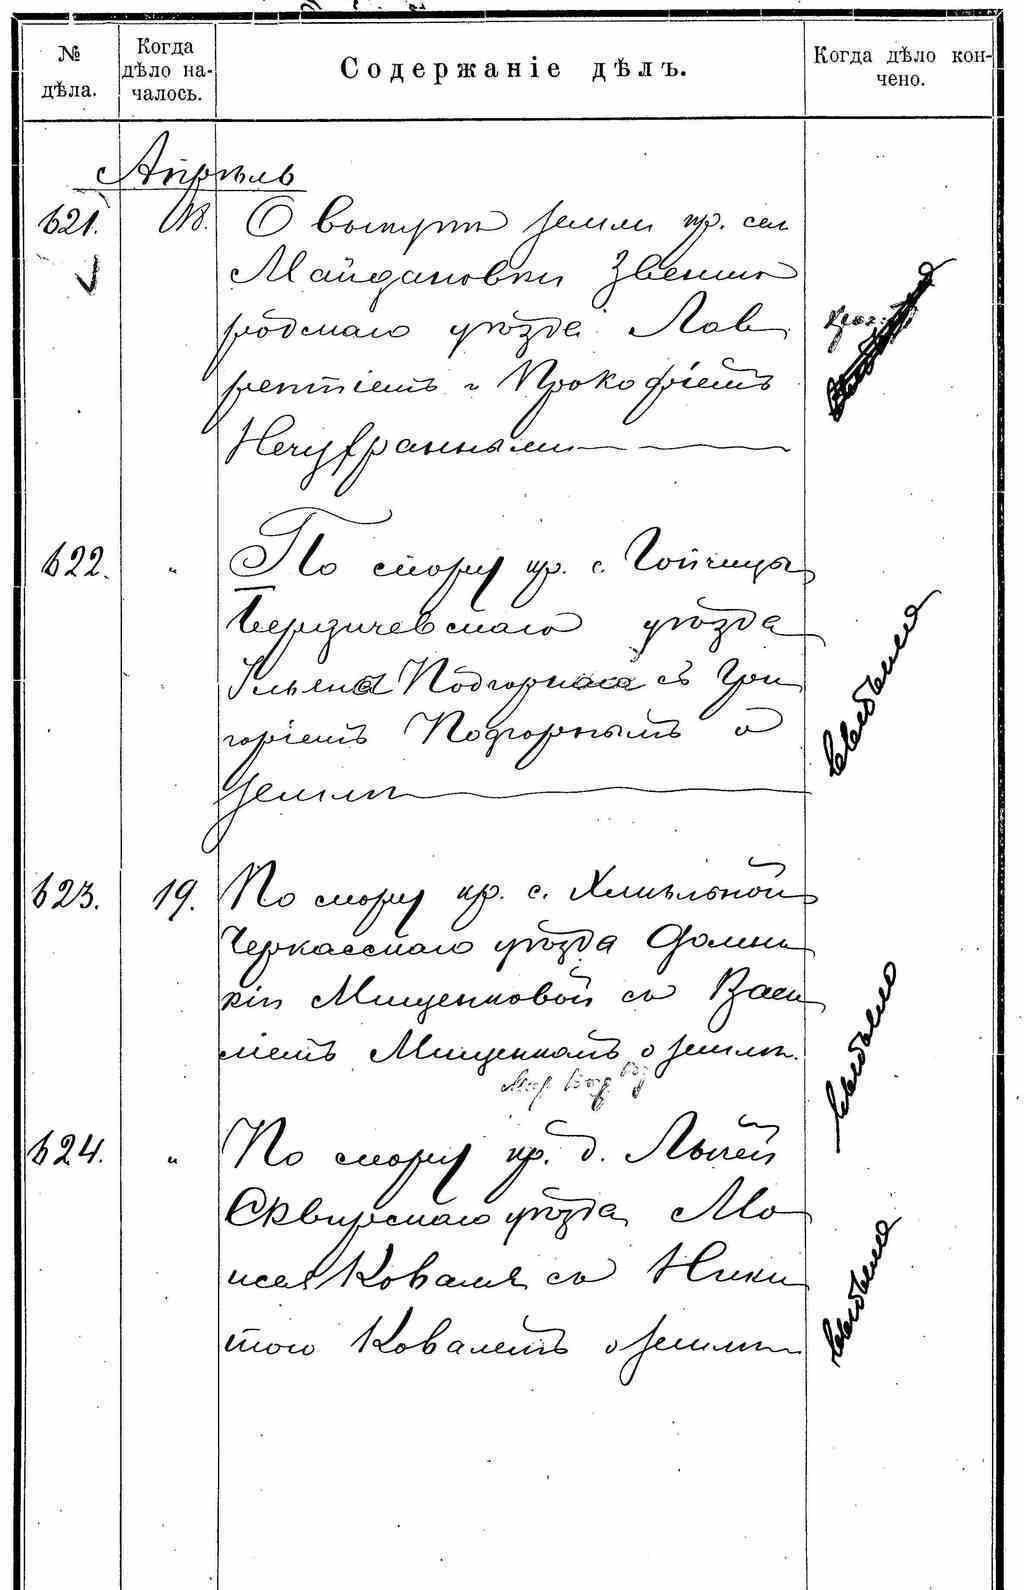 № дѣла.
Когда дѣло на-
чалось.
Содержаніе дѣлъ.
Когда дѣло кон-
чено.
Апрѣль
621. 18. О выкупѣ земли кр. сел
Майдановки Звениго
родскаго уѣзда Лав
рентіемъ и Прокофіемъ
622. " По спору кр. с. Гойчицы
Бердичевскаго уѣзда
Ульяна Подгорнаго съ Гри
горіемъ Подгорнымъ о
землѣ
623. 19. По спору кр. с. Хмѣльной
Черкасскаго уѣзда Домни
кіи Мищенковой съ Васи
ліемъ Мищенкомъ о землѣ.
624. " По спору кр. д.
Сквирскаго уѣзда Мо
исея Коваля съ Ники
тою Ковалемъ о землѣ